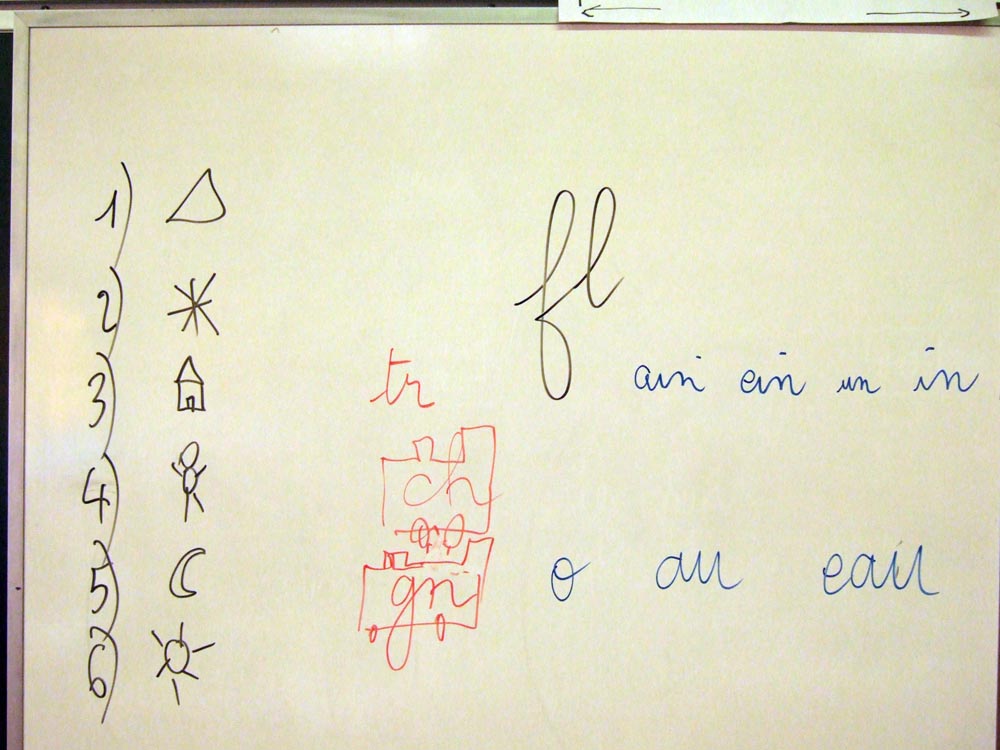 1)
2)
3)
4)
5)
6)
fl
tr
ain ein un in
ch
gn
o au eau